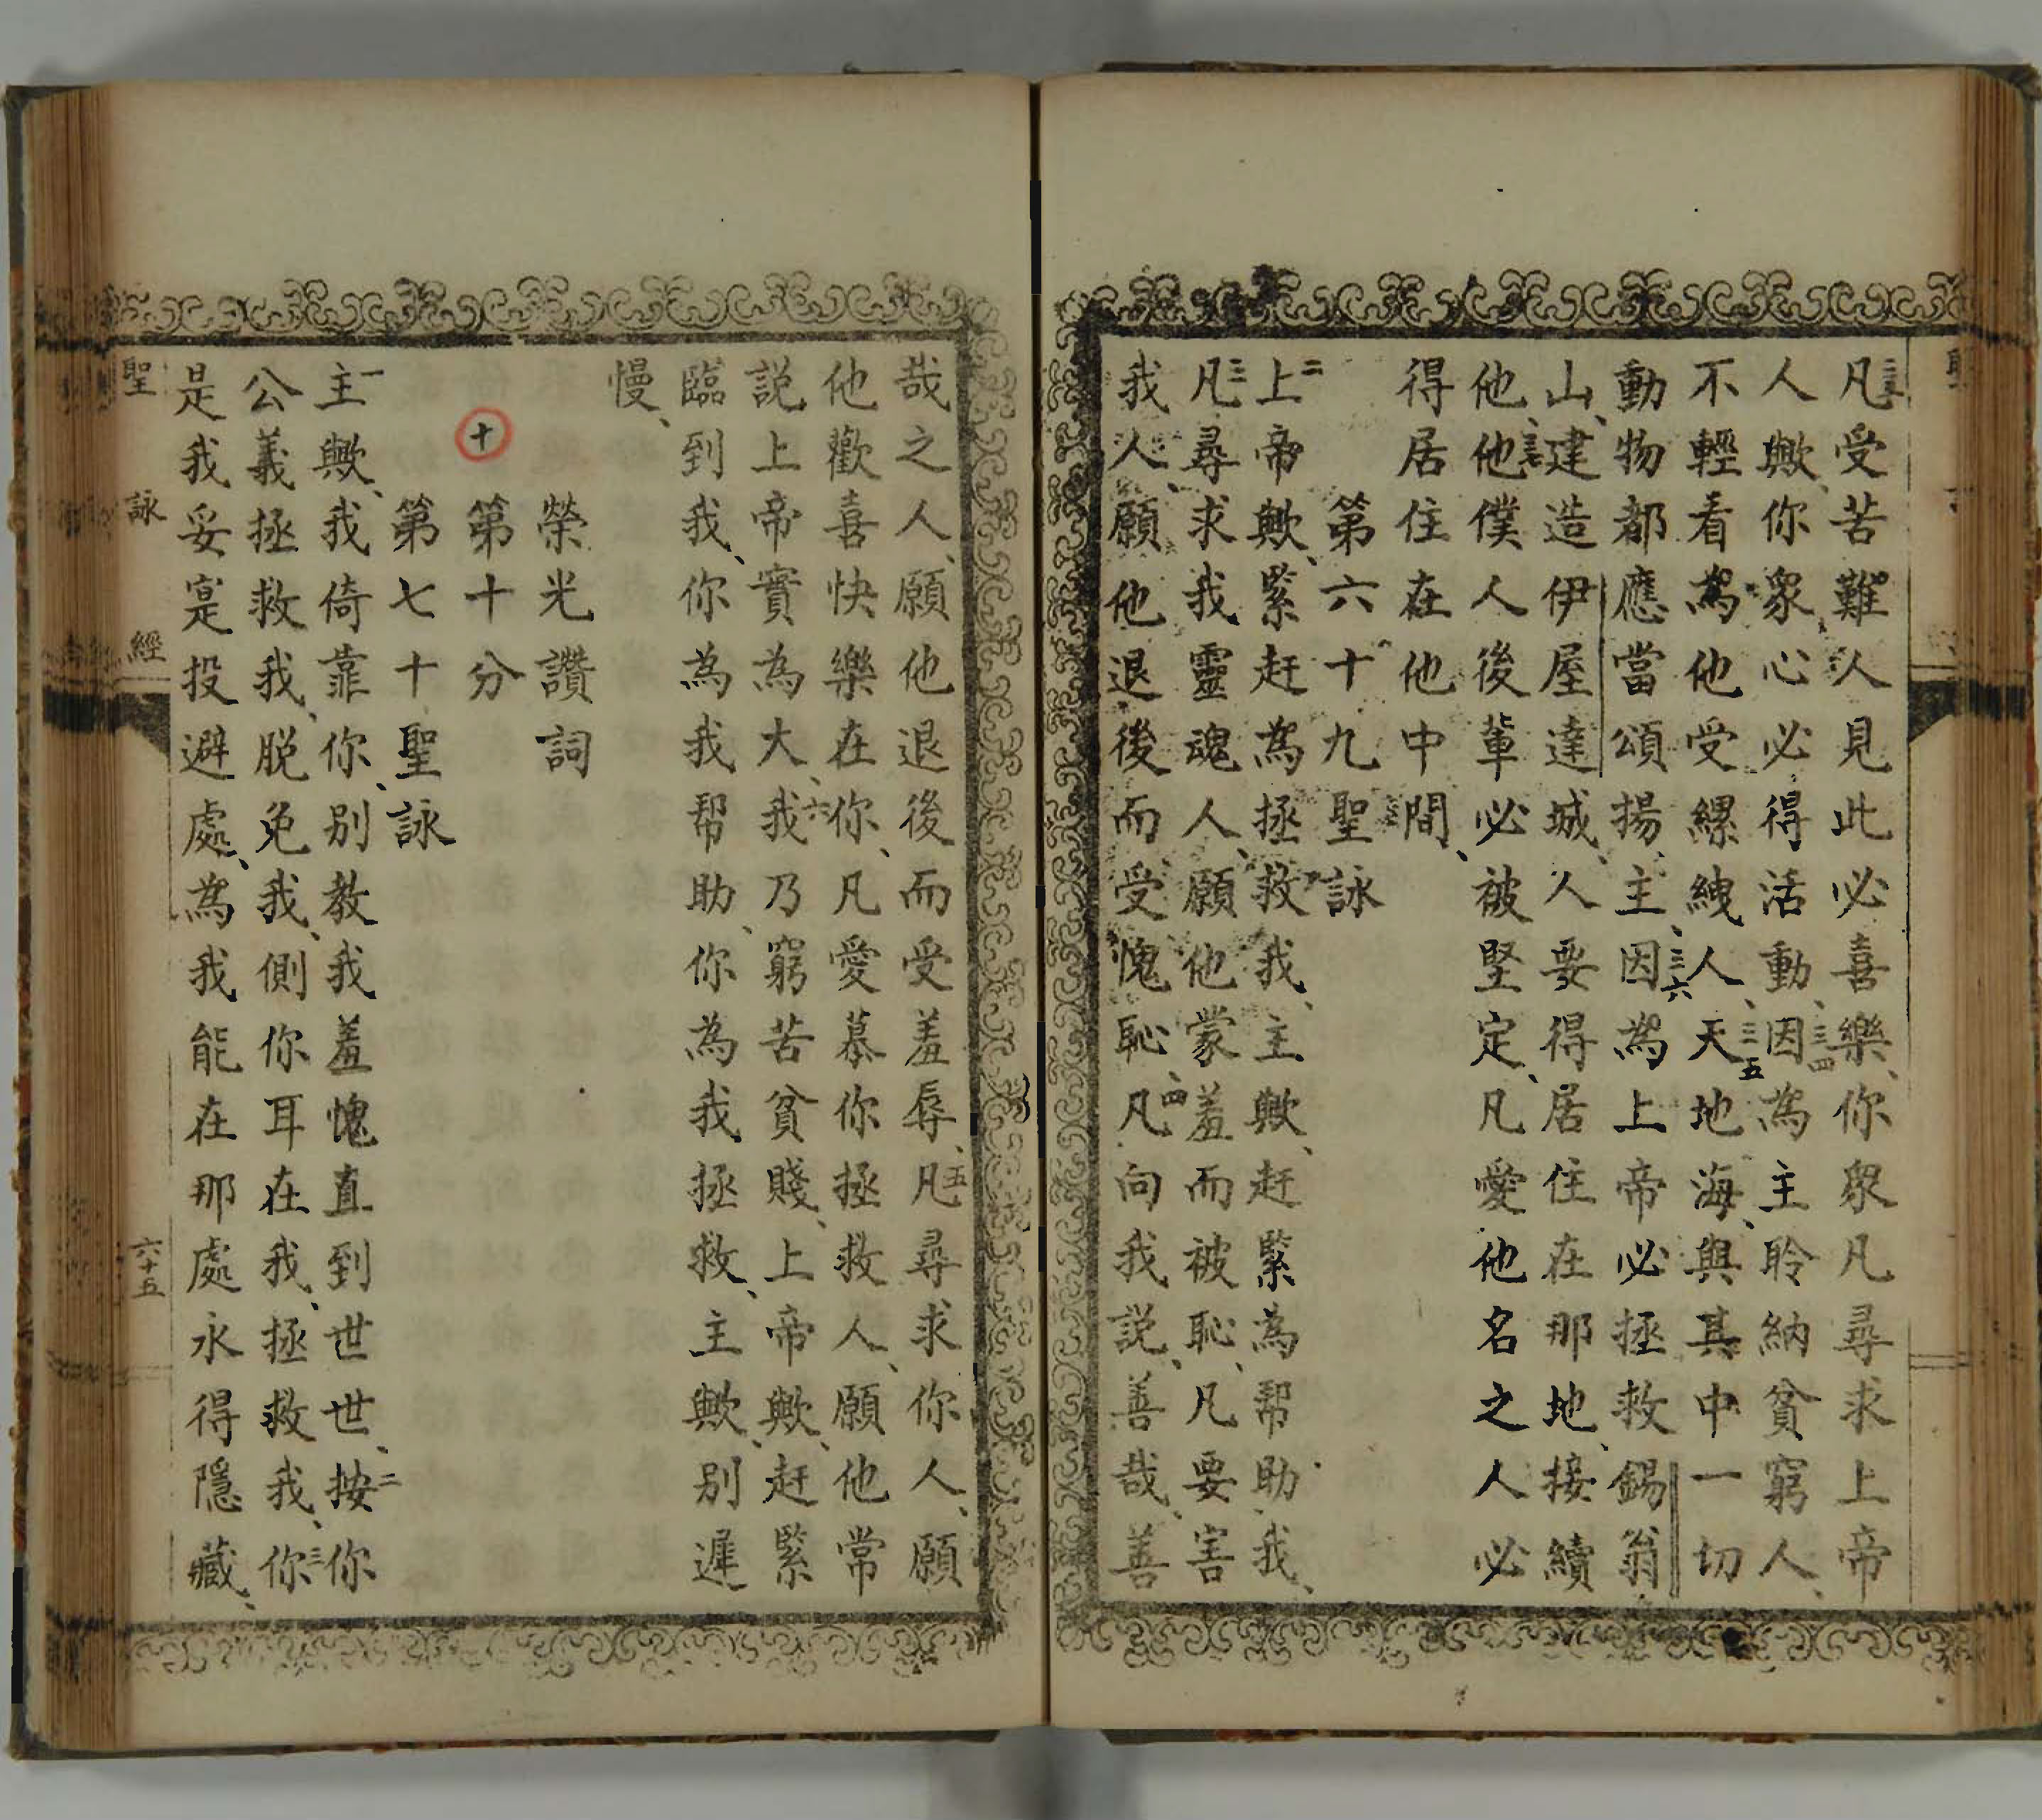 三三凡受苦難人見此必喜樂、你衆凡尋求上帝
人歟、你衆心必得活動、三四因為主聆納貧窮人、
不輕看為他受縲絏人、三五天地海、與其中一切
動物都應當頌揚主、三六因為上帝必拯救錫翁
山、建造伊屋達城、人要得居住在那地、接續
他、三七他僕人後輩必被堅定、凡愛他名之人必
得居住在他中間、
第六十九聖詠
二上帝歟、緊赶為拯救我、主歟、赶緊為帮助我、
三凡尋求我靈魂人、願他蒙羞而被恥、凡要害
我人、願他退後而受愧恥、四凡向我説、善哉、善
哉之人、願他退後而受羞辱、五凡尋求你人、願
他歡喜快樂在你、凡愛慕你拯救人、願他常
説上帝實為大、六我乃窮苦貧賤、上帝歟、赶緊
臨到我、你為我帮助、你為我拯救、主歟、别遲
慢、
榮光讚詞
十
第十分
第七十聖詠
一主歟、我倚靠你、别教我羞愧直到世世、二按你
公義拯救我、脱免我、側你耳在我、拯救我、三你
是我妥寔投避處、為我能在那處永得隱藏、
聖詠經
六十五